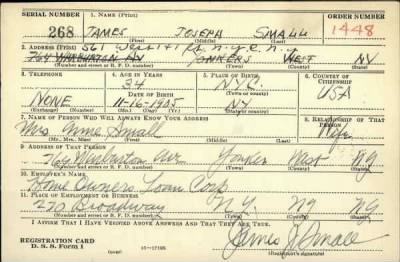 SERIAL NUMBER 1. NAME (Print) ORDER NUMBER
268 JAMES JOSEPH SMALL 1448
(First) (Middle) (Last)
2. ADDRESS (Print) 561 West 141 St. N.Y.C. N.Y.
764 WARBURTON AV YONKERS WEST NY
(Number and street or R. F. D. number) (Town) (County) (State)
3. TELEPHONE 4. AGE IN YEARS 5. PLACE OF BIRTH 6. COUNTRY OF CITIZENSHIP
34 NYC
DATE OF BIRTH (Town or county) USA
NONE 11-16-1905 NY
(Exchange) (Number) (Mo.) (Day) (Yr.) (State or country)
7. NAME OF PERSON WHO WILL ALWAYS KNOW YOUR ADDRESS 8. RELATIONSHIP OF THAT PERSON
Mrs Anna Small Wife
(Mr., Mrs., Miss) (First) (Middle) (Last)
9. ADDRESS OF THAT PERSON
764 Warburton Ave Yonkers West NY
(Number and street or R. F. D. number) (Town) (County) (State)
10. EMPLOYER'S NAME
Home Owners Loan Corp
11. PLACE OF EMPLOYMENT OR BUSINESS
270 Broadway N.Y. NY NY
(Number and street or R. F. D. number) (Town) (County) (State)
I AFFIRM THAT I HAVE VERIFIED ABOVE ANSWERS AND THAT THEY ARE TRUE.
REGISTRATION CARD
D. S. S. FORM 1 (over) 16—17105 James J Small
(Registrant's signature)